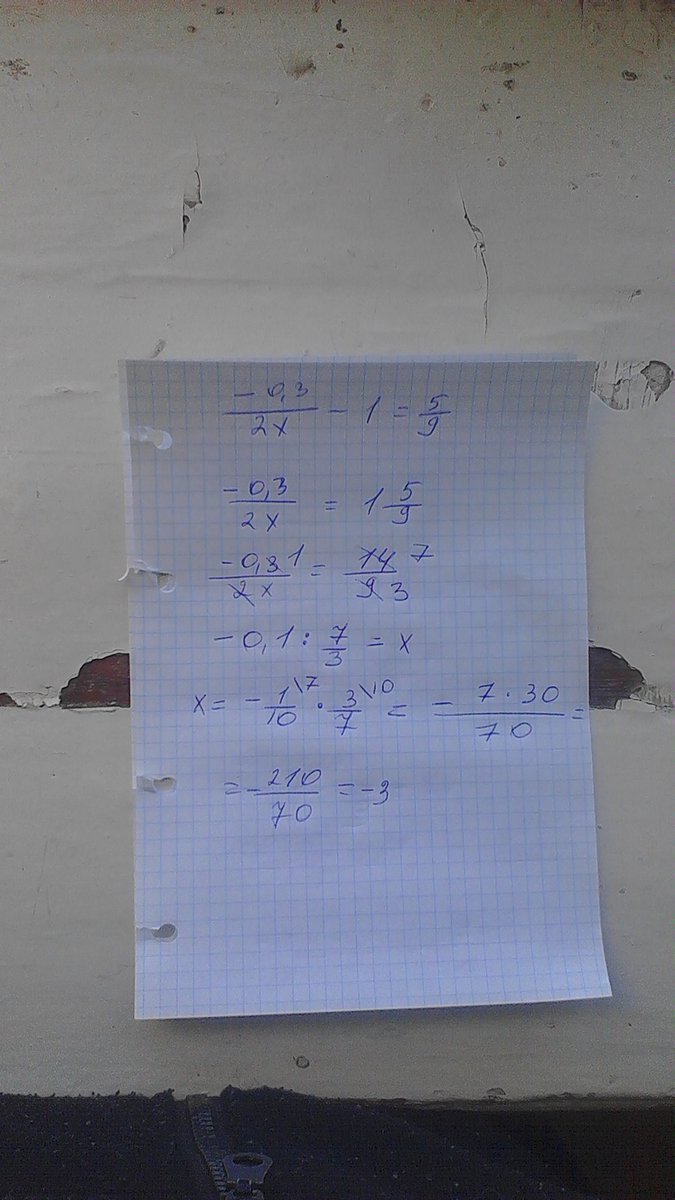 -0,3/2x - 1 = 5/9
-0,3/2x = 1 5/9
-0,3 1/2x = 14 7/9 3
-0,1 : 7/3 = x
x = -1/10 \7 · 3/7 \10 = - 7·30/70 =
= -210/70 = -3